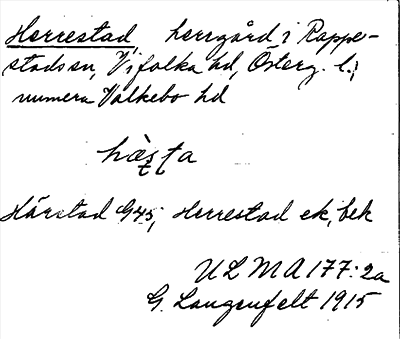 Herrestad, herrgård i Rappe-
stads sn, Vifolka hd, Österg. l.;
numera Valkebo hd
hæ̀sta
Härstad G45, Herrestad ek, bek
ULMA 177:2a
G. Langenfelt 1915